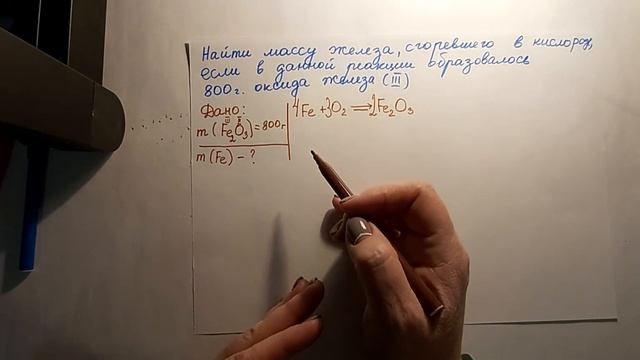 Найти массу железа, сгоревшего в кислород,
если в данной реакции образовалось
800 г. оксида железа (III)
Дано:
m (Fe₂O₃) = 800 г
m (Fe) - ?
4Fe + 3O₂ ⟹ 2Fe₂O₃